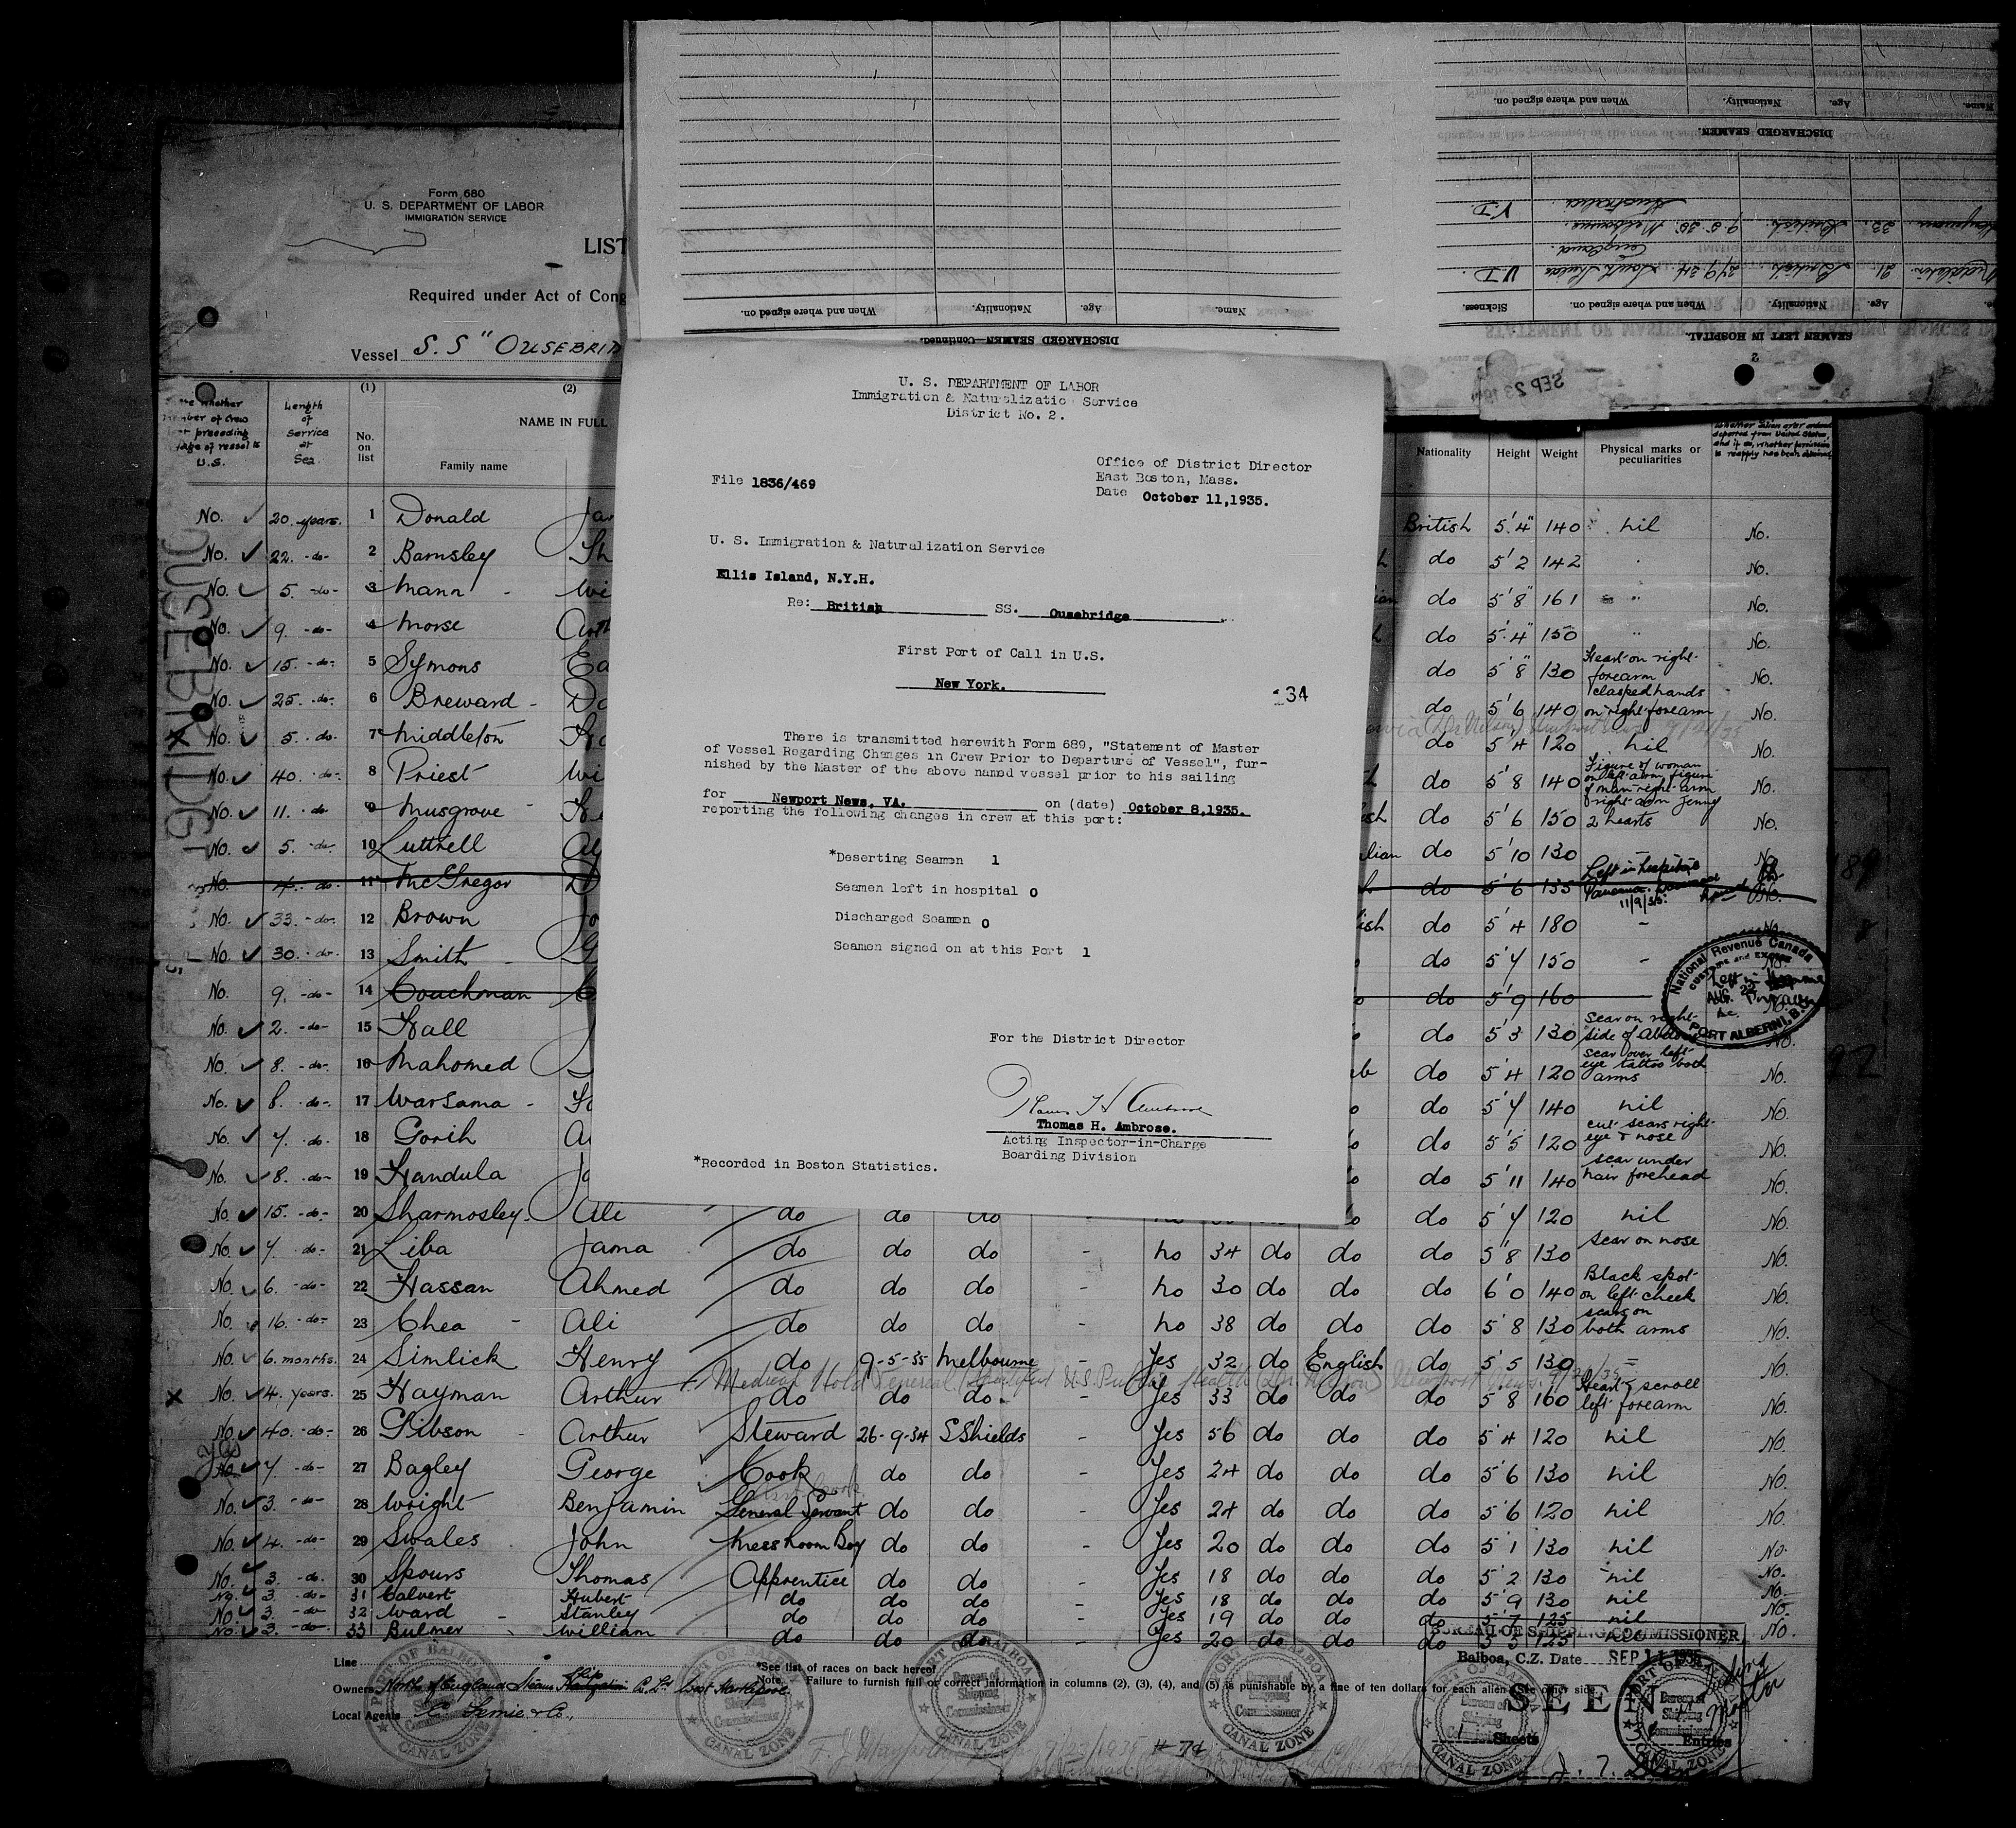 Form 680
U. S. DEPARTMENT OF LABOR
IMMIGRATION SERVICE
LIST
Required under Act of Cong
Vessel S.S "OUSEBRID
Length of Service at Sea
(1)
No. on list
(2)
NAME IN FULL
Family name
Nationality Height Weight Physical marks or peculiarities
No. 20 years. 1 Donald Ja British 5'4" 140 nil No.
No. 22 -do- 2 Barnsley Th do 5'2 142 " No.
No. 5. -do- 3 Mann Wi do 5'8" 161 " No.
No. 9. -do- 4 Morse Arth do 5'4" 150 " No.
No. 15. -do- 5 Symons Ea do 5'8" 130 Heart on right forearm No.
No. 25. -do- 6 Breward Do do 5'6 140 clasped hands on right forearm No.
No. 5. do- 7 Middleton do 5'4 120 nil No.
No. 40. -do- 8 Priest Wi do 5'8 140 Figure of woman on left arm, figure of man right arm No.
No. 11. -do 9 Musgrove do 5'6 150 right arm Jenny 2 hearts No.
No. 5. -do- 10 Luttrell Al lian do 5'10 130 - No.
No. 4. do- 11 McGregor D do 5'6 135 Left in hospital Panama 11/9/35. No.
No. 33. -do- 12 Brown Jo ish do 5'4 180 - No.
No. 30. -do- 13 Smith G do 5'7 150 - No.
No. 9. -do- 14 Couchman do 5'9 160
No. 2. -do- 15 Hall do 5'3 130 Scar on right side of No.
No. 8. -do- 16 Mahomed do 5'4 120 scar over left eye tattoo both arms No.
No. 8. -do- 17 Warsama do 5'7 140 nil No.
No. 7. do- 18 Gorih A do 5'5 120 cut scars right eye & nose No.
No. 8. -do- 19 Handula Ja do 5'11 140 scar under hair forehead No.
No. 15. -do- 20 Sharmosley Ali do do do - do 5'7 120 nil No.
No. 7. do- 21 Liba Jama do do do - no 34 do do do 5'8 130 scar on nose No.
No. 6. -do- 22 Hassan Ahmed do do do - no 30 do do do 6'0 140 Black spot on left cheek No.
No. 16. -do- 23 Chea Ali do do do - no 38 do do do 5'8 130 scars on both arms No.
No. 6. months. 24 Simlick Henry do 9-5-35 Melbourne - Yes 32 do English do 5'5 130 - No.
No. 4. years. 25 Hayman Arthur do do do - Yes 33 do do do 5'8 160 Heart & scroll left forearm No.
No. 40. -do- 26 Gibson Arthur Steward 26-9-34 S Shields - Yes 56 do do do 5'4 120 nil No.
No. 7. -do- 27 Bagley George Cook do do - Yes 24 do do do 5'6 130 nil No.
No. 3. -do- 28 Wright Benjamin General Servant do do - Yes 24 do do do 5'6 120 nil No.
No. 4. -do- 29 Swales John Messroom Boy do do - Yes 20 do do do 5'1 130 nil No.
No. 3. -do. 30 Spours Thomas Apprentice do do - Yes 18 do do do 5'2 130 nil No.
No. 3. -do- 31 Calvert Hubert do do do - Yes 18 do do do 5'9 130 nil No.
No. 3. -do 32 Ward Stanley do do do - Yes 19 do do do 5'7 125 nil No.
No. 3. -do- 33 Bulmer William do do do - Yes 20 do do do 5'5 125 nil No.
OUSEBRIDGE
National Revenue Canada
CUSTOMS and EXCISE
AUG. 22
PORT ALBERNI, B.C.
Line
Owners North of England Steam Ship Co Ltd West Hartlepool
Local Agents
*See list of races on back hereof
Note. Failure to furnish full or correct information in columns (2), (3), (4), and (5) is punishable by a fine of ten dollars for each alien. See other side.
PORT OF BALBOA
Bureau of Shipping Commissioner
CANAL ZONE
BUREAU OF SHIPPING COMMISSIONER,
Balboa, C.Z. Date SEP 11 1935
SEEN
1 Sheets Entries
# 74
U. S. DEPARTMENT OF LABOR
Immigration & Naturalizatio Service
District No. 2.
File 1836/469
Office of District Director
East Boston, Mass.
Date October 11,1935.
U. S. Immigration & Naturalization Service
Ellis Island, N.Y.H.
Re: British SS. Ousebridge.
First Port of Call in U.S.
New York.
134
There is transmitted herewith Form 689, "Statement of Master
of Vessel Regarding Changes in Crew Prior to Departure of Vessel", fur-
nished by the Master of the above named vessel prior to his sailing
for Newport News, VA. on (date) October 8,1935.
reporting the following changes in crew at this port:
*Deserting Seamen 1
Seamen left in hospital 0
Discharged Seamen 0
Seamen signed on at this Port 1
For the District Director
Thomas H. Ambrose
Thomas H. Ambrose.
Acting Inspector-in-Charge
Boarding Division
*Recorded in Boston Statistics.
DISCHARGED SEAMEN—Continued.
Name. Age. Nationality. When and where signed on.
2
SEAMEN LEFT IN HOSPITAL.
Age. Nationality. When and where signed on. Sickness.
Middleton. 21 British. 27/9.34. South Shields England. V.D.
Hayman. 33. British. 9.5.35. Melbourne. Australia. V.D.
DISCHARGED SEAMEN.
Name. Age. Nationality. When and where signed on.
SEP 23